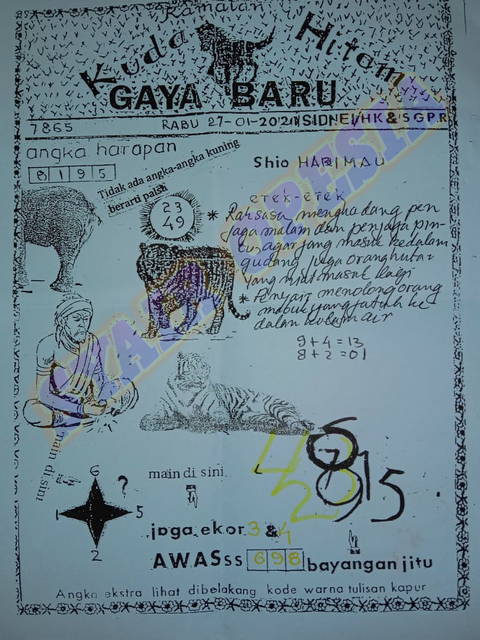 Ramalan
Kuda Hitam
GAYA BARU
7865
RABU 27-01-2021
SIDNEI/HK & SGPR
angka harapan
8195
Tidak ada angka-angka kuning
berarti palsu
23
49
Shio HARIMAU
etek-etek
* Raksasa menghadang pen
jaga malam dan penjaga pin-
tu, agar yang masuk kedalam
gudang juga orang hutan
yang
* Penyair menolong orang
mabuk yang jatuh ke
dalam kolam air
9+4=13
8+2=01
main di sini
6
?
1
5
2
main di sini
15
joga ekor 3 & 4
AWASss 698 bayangan jitu
Angka ekstra lihat dibelakang kode warna tulisan kapur